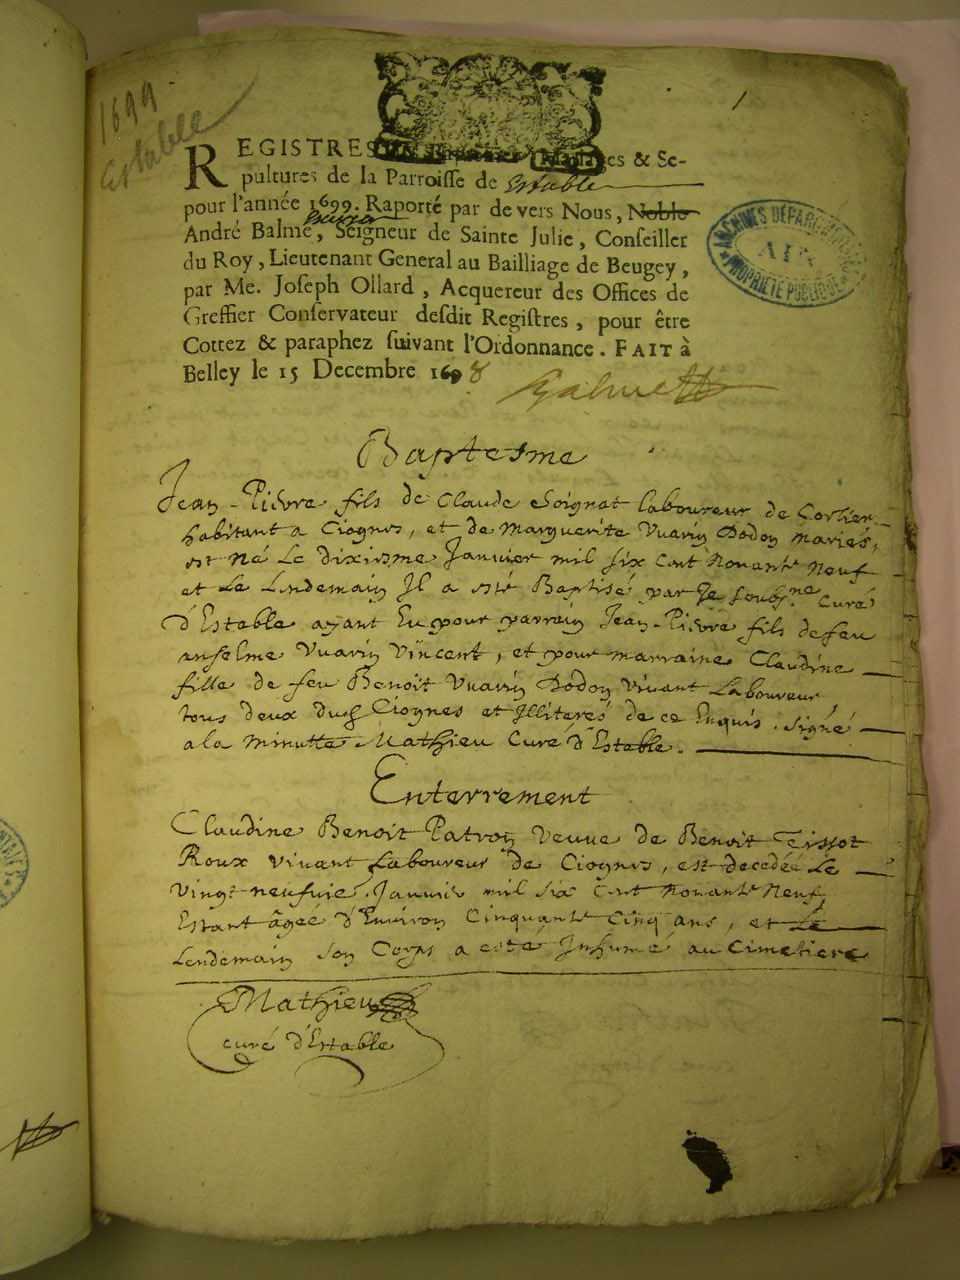 1699
Estable
1
REGISTRES des Baptêmes, Mariages & Se-
pultures de la Parroisse de Estable
pour l'année 1699. Raporté par devers Nous, Noble
André Balme, Seigneur de Sainte Julie, Conseiller
du Roy, Lieutenant General au Bailliage de Beugey,
par Me. Joseph Ollard, Acquereur des Offices de
Greffier Conservateur desdit Registres, pour être
Cottez & paraphez suivant l'Ordonnance. FAIT à
Belley le 15 Decembre 1698
ARCHIVES DÉPARTEMENTALES
AIN
PROPRIÉTÉ PUBLIQUE
Baptesme
Jean-Pierre fils de Claude Soignat laboureur de Corlier
habitant a Ciognes, et de Marguerite Vuarin Dodon mariés,
est né Le dixiesme Janvier mil six Cent Nonante Neuf
et Le Lendemain Il a esté Baptisé par Je soubs.ne Curé
d'Estable ayant Eu pour parrain Jean-Pierre fils de feu
anselme Vuarin Vincent, et pour marraine Claudine
fille de feu Benoit Vuarin Dodon vivant Laboureur
tous deux dud Ciognes et Illiterés de ce Enquis. Signé
a la minutte Mathieu Curé d'Estable.
Enterrement
Claudine Benoit Patron Veuve de Benoit Tissot
Roux vivant Laboureur de Ciognes, est decedée Le
vingt neufvie. Janvie mil six Cent Nonante Neuf
Estant âgée d'Environ Cinquante Cinq ans, et Le
Lendemain son Corps a esté Inhumé au Cimetiere
Mathieu
curé d'Estable